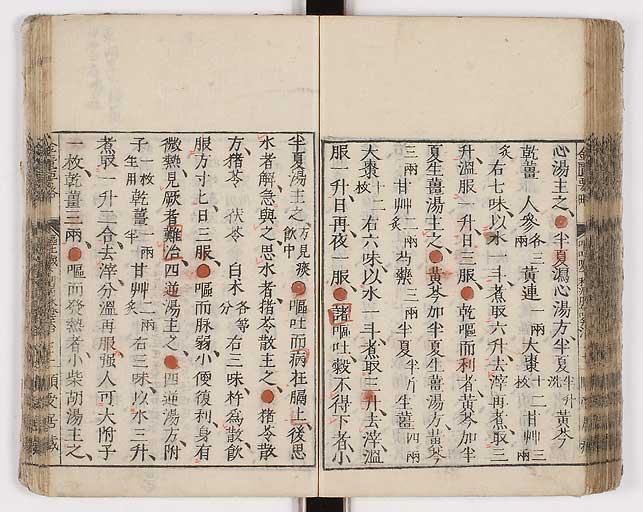 心湯主之半夏瀉心湯方半夏半升洗黄芩
乾薑 人參各三兩黄連一兩大棗十二枚甘艸三兩
炙右七味以水一斗煮取六升去滓再煮取三
升溫服一升日三服乾嘔而利者黄芩加半
夏生薑湯主之黄芩加半夏生薑湯方黄芩
三兩甘艸二兩炙芍藥三兩半夏半斤生薑四兩
大棗十二枚右六味以水一斗煮取三升去滓溫
服一升日再夜一服諸嘔吐穀不得下者小
半夏湯主之方見痰飲中嘔吐而病在膈上後思
水者解急與之思水者猪苓散主之猪苓散
方猪苓 茯苓 白朮各等分右三味杵爲散飲
服方寸七日三服嘔而脉弱小便復利身有
微熱見厥者難治四逆湯主之四逆湯方附
子一枚生用乾薑一兩半甘艸二兩炙右三味以水三升
煮取一升二合去滓分溫再服强人可大附子
一枚乾薑三兩嘔而發熱者小柴胡湯主之